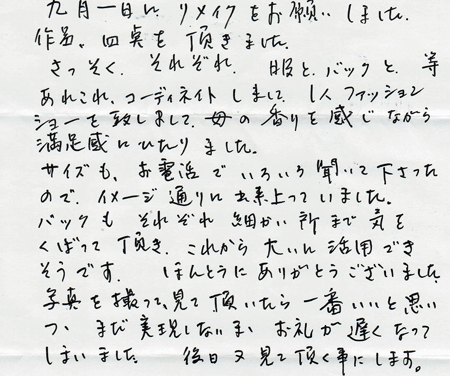 九月一日に リメイクをお願いしました.
作品、四点を頂きました.
さっそく、それぞれ、服と、バックと、等
あれこれ、コーディネイトしまして、1人ファッション
ショーを致しまして、母の香りを感じながら
満足感にひたりました。
サイズも、お電話でいろいろ聞いて下さった
ので、イメージ通りに出来上っていました。
バックもそれぞれ細かい所まで気を
くばって頂き、これから大いに活用でき
そうです. ほんとうにありがとうございました
写真を撮って、見て頂いたら一番いいと思い
つつ、まだ実現しないまま、お礼が遅くなって
しまいました. 後日又見て頂く事にします。